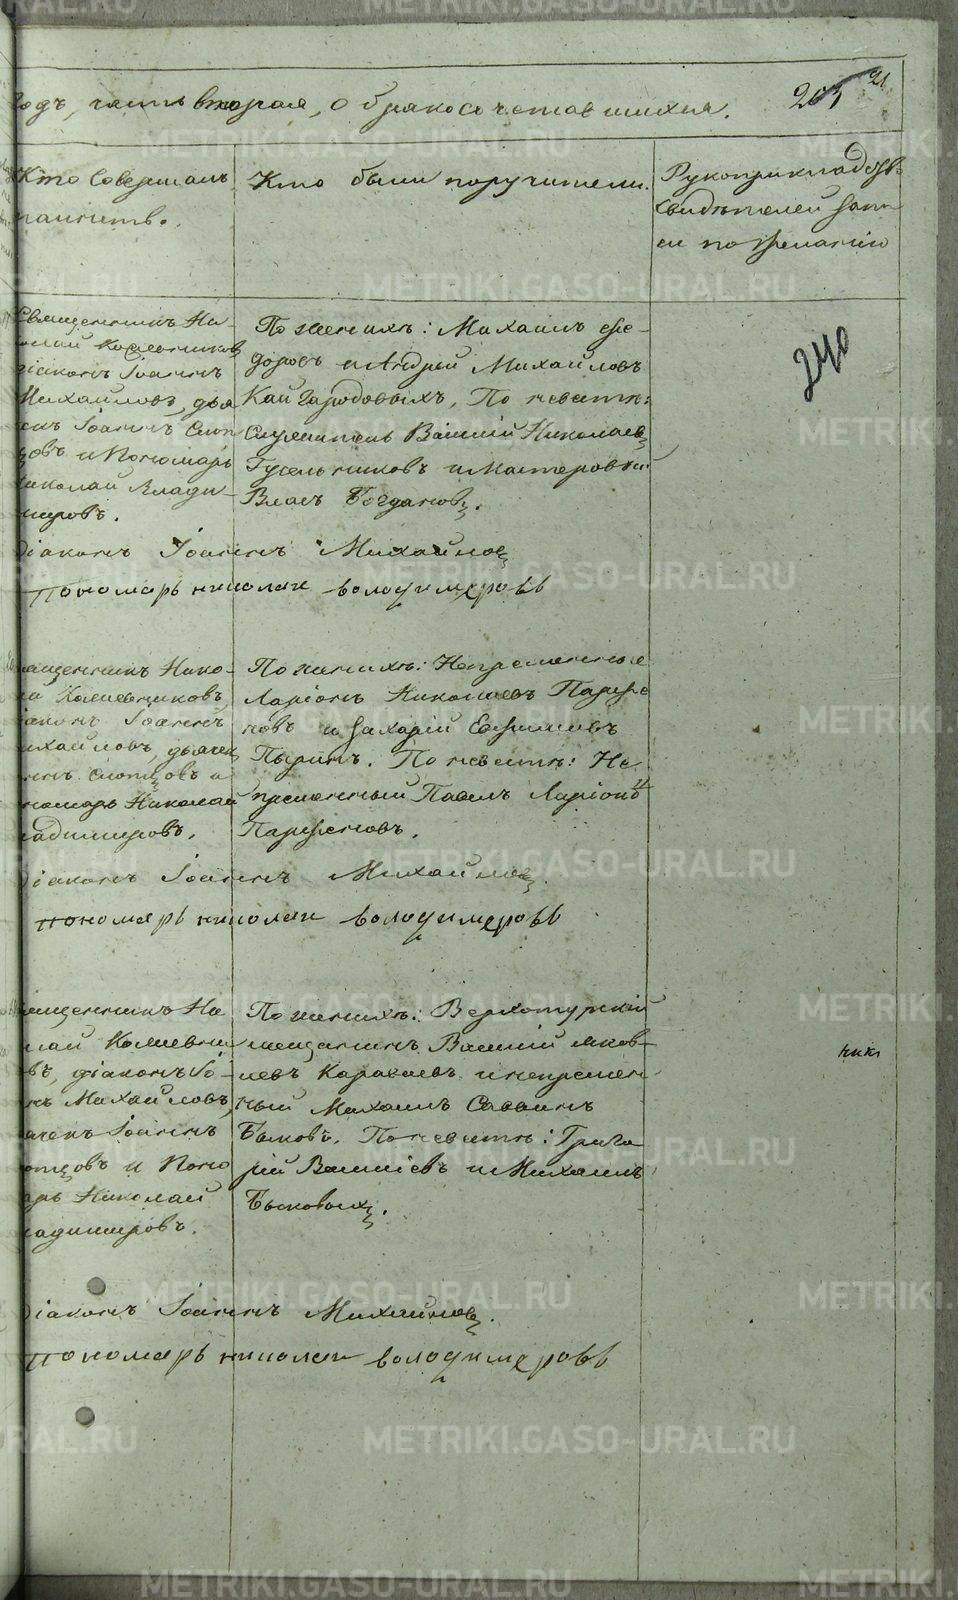 годъ, часть вторая, о бракосочетавшихся. 205 21
Кто совершалъ
таинств.
Кто были поручители.
Рукоприкладств.
свидѣтелей запи
си по желанію
240
Священникъ Ни-
колай Кожевниковъ
діаконъ Іоаннъ
Михайловъ, дья
чекъ Іоаннъ Слоп
цовъ и Пономарь
Николай Влади-
меровъ.
По женихѣ: Михаилъ Фе-
доровъ и Андрей Михайловъ
Кайгародовыхъ, По невѣстѣ:
Служитель Василій Николаевъ
Гусельниковъ и мастеровой
Власъ Богдановъ.
Діаконъ Іоаннъ Михайловъ
пономарь николаи володимеровъ
ященникъ Нико-
ай Кожевниковъ,
іаконъ Іоаннъ
ихайловъ, дьячек
аннъ Слопцовъ и
номарь Николай
ладимировъ.
По женихѣ: Непременные
Ларіонъ Николаевъ Парфе
новъ и Захарій Ефимовъ
Пыринъ. По невѣстѣ: Не
пременный Павелъ Ларіоновъ
Парфеновъ.
Діаконъ Іоаннъ Михайловъ.
пономарь николаи володимеровъ
ященникъ Ни
лай Кожевни
въ, діаконъ Іо-
нъ Михайловъ,
ячекъ Іоаннъ
опцовъ и Поно
арь Николай
ладимировъ.
По женихѣ: Верхотурскій
мещанинъ Василій Яков-
левъ Караваевъ и непремен
ный Михаилъ Саввинъ
Быковъ. По невѣстѣ: Григо
рій Василіевъ и Михаилъ
Быковыхъ.
Діаконъ Іоаннъ Михайловъ.
пономарь николаи володимеровъ
METRIKI.GASO-URAL.RU